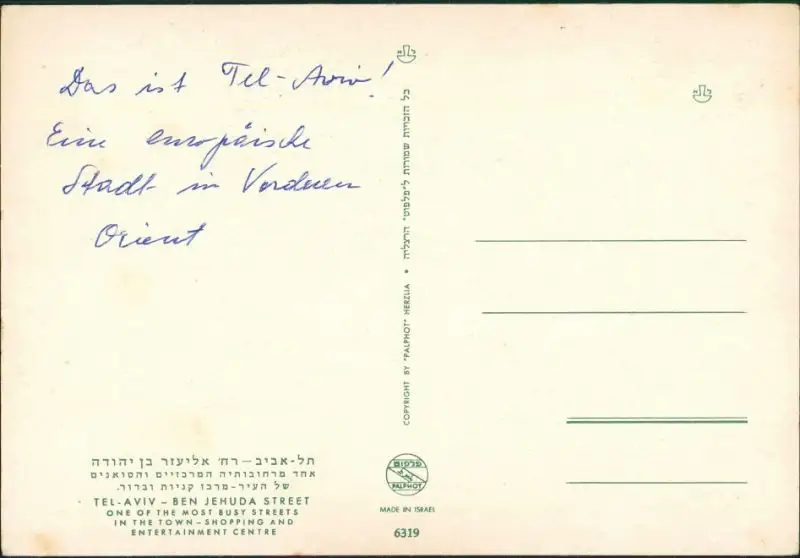 Das ist Tel-Aviv!
Eine europäische
Stadt in Vorderen
Orient
תל-אביב – רח' אליעזר בן יהודה
אחד מרחובותיה המרכזיים והסואנים
של העיר-מרכז קניות ובדור.
TEL-AVIV – BEN JEHUDA STREET
ONE OF THE MOST BUSY STREETS
IN THE TOWN – SHOPPING AND
ENTERTAINMENT CENTRE
כל הזכויות שמורות ל"פלפוט" הרצליה • COPYRIGHT BY "PALPHOT" HERZLIA
פלפוט
PALPHOT
MADE IN ISRAEL
6319